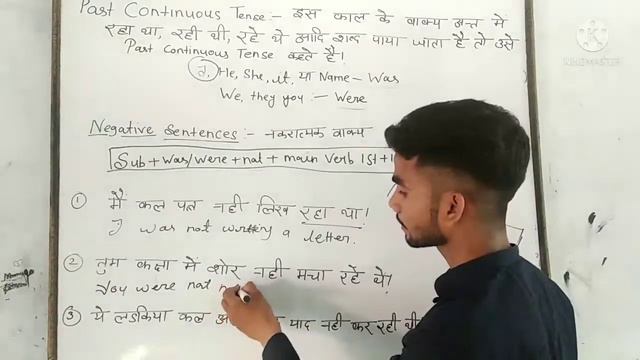 Past Continuous Tense:- इस काल के वाक्य अन्त में
रहा था, रही थी, रहे थे आदि शब्द पाया जाता है तो उसे
Past Continuous Tense कहते है।
He, She, it, या Name - Was
We, they you :- Were
Negative Sentences:- नकारात्मक वाक्य
Sub + was/were + not + main verb 1st +
① मैं कल पत्र नही लिख रहा था!
I was not writing a letter.
② तुम कक्षा में शोर नही मचा रहे थे!
You were not
③ ये लडकिया कल याद नही कर रही थी
KINEMASTER